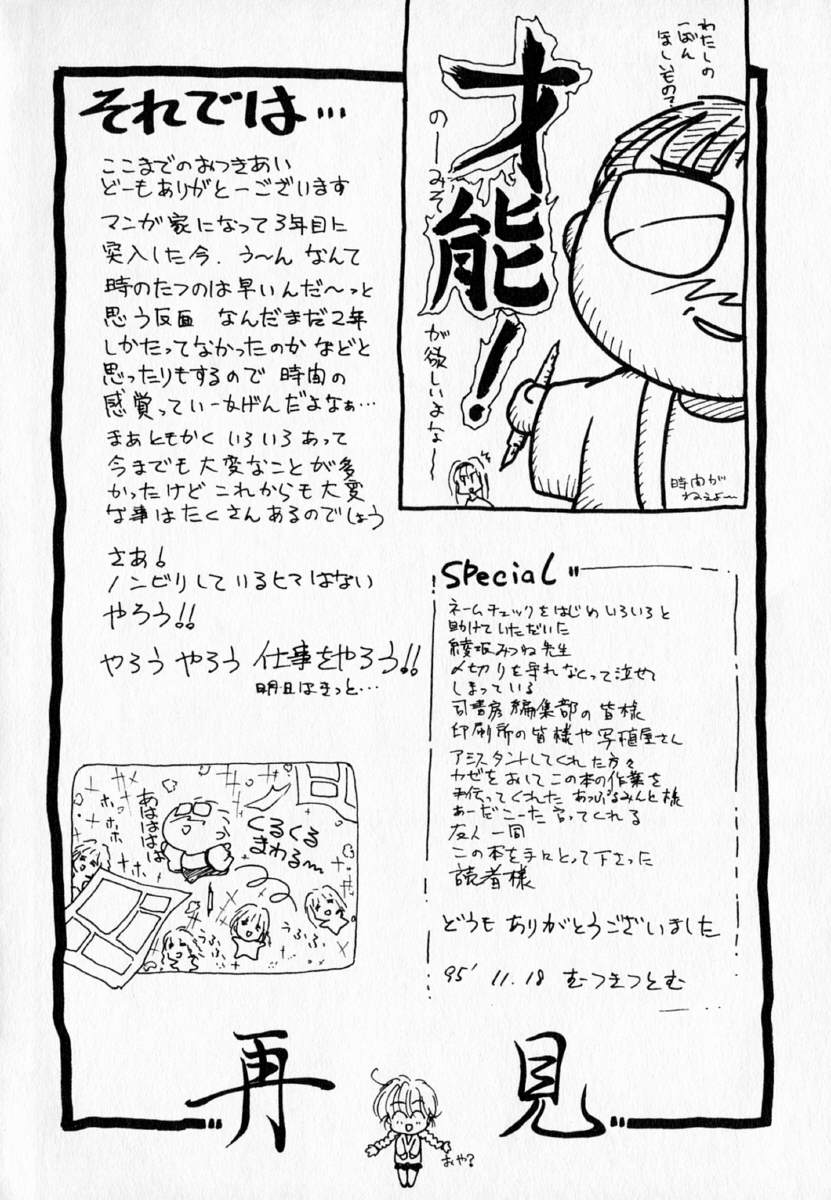 わたしの
一ばん
ほしいもの?
才能!
のーみそ
が欲しいよな〜
時間が
ねぇよ〜
それでは…
ここまでのおつきあい
どーもありがとーございます
マンガ家になって3年目に
突入した今、う〜ん なんて
時のたつのは早いんだ〜っと
思う反面 なんだまだ2年
しかたってなかったのか などと
思ったりもするので 時間の
感覚っていーかげんだよなぁ…
まぁともかく いろいろあって
今までも大変なことが多
かったけど これからも大変
な事はたくさんあるのでしょう
さあ!
ノンビリしているヒマはない
やろう!!
やろう やろう 仕事をやろう!!
明日はきっと…
Special
ネームチェックをはじめいろいろと
助けていただいた
綾坂みつね先生
〆切りを守れなくって泣せて
しまっている
司書房編集部の皆様
印刷所の皆様や写植屋さん
アシスタントしてくれた方々
カゼをおしてこの本の作業を
手伝ってくれた あっぷるみんと様
あーだこーだ言ってくれる
友人一同
この本を手にとって下さった
読者様
どうも ありがとうございました
95' 11.18 むつきつとむ
あはははは
ホホホホ
くるくる
まわる〜
うふふ
うふふ
再見
おや?